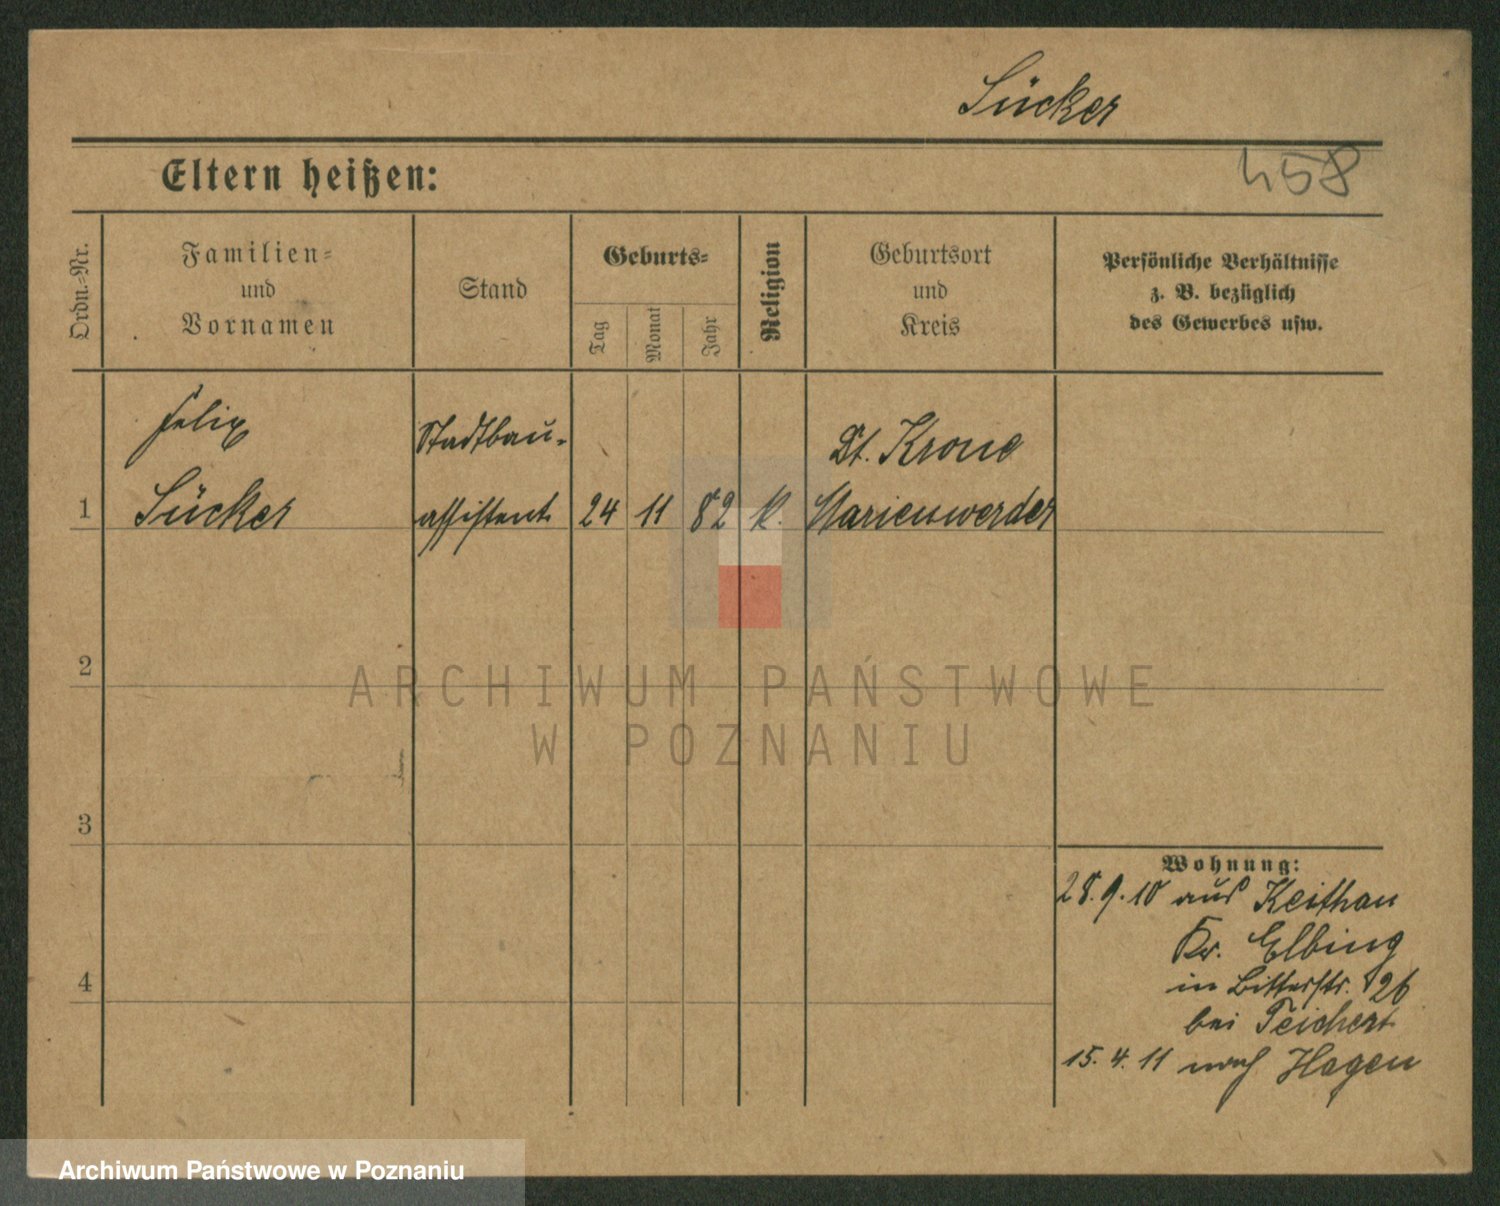 Sücker
458
Eltern heißen:
Ordn.-Nr.
Familien-
und
Vornamen
Stand
Geburts-
Tag
Monat
Jahr
Religion
Geburtsort
und
Kreis
Persönliche Verhältnisse
z. B. bezüglich
des Gewerbes usw.
Felix Stadtbau- Dt. Krone
1 Sücker assistent 24 11 82 k. Marienwerder
2
3
4
Wohnung:
28.9.10 aus
Kr. Elbing
in Bitterstr. 26
bei Teichert
15.4.11 nach Hagen
ARCHIWUM PAŃSTWOWE
W POZNANIU
Archiwum Państwowe w Poznaniu